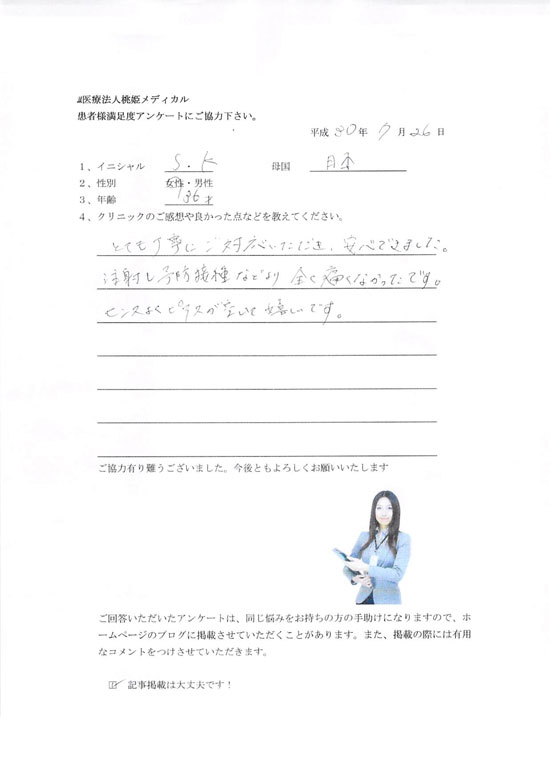 医療法人桃姫メディカル
患者様満足度アンケートにご協力下さい。
平成 30 年 7 月 26 日
1、イニシャル S.K 母国 日本
2、性別 女性・男性
3、年齢 36才
4、クリニックのご感想や良かった点などを教えてください。
とても丁寧にご対応いただき、安心できました。
注射も予防接種などより全く痛くなかったです。
センスよくピアスが空いて嬉しいです。
ご協力有り難うございました。今後ともよろしくお願いいたします
ご回答いただいたアンケートは、同じ悩みをお持ちの方の手助けになりますので、ホ
ームページのブログに掲載させていただくことがあります。また、掲載の際には有用
なコメントをつけさせていただきます。
記事掲載は大丈夫です！